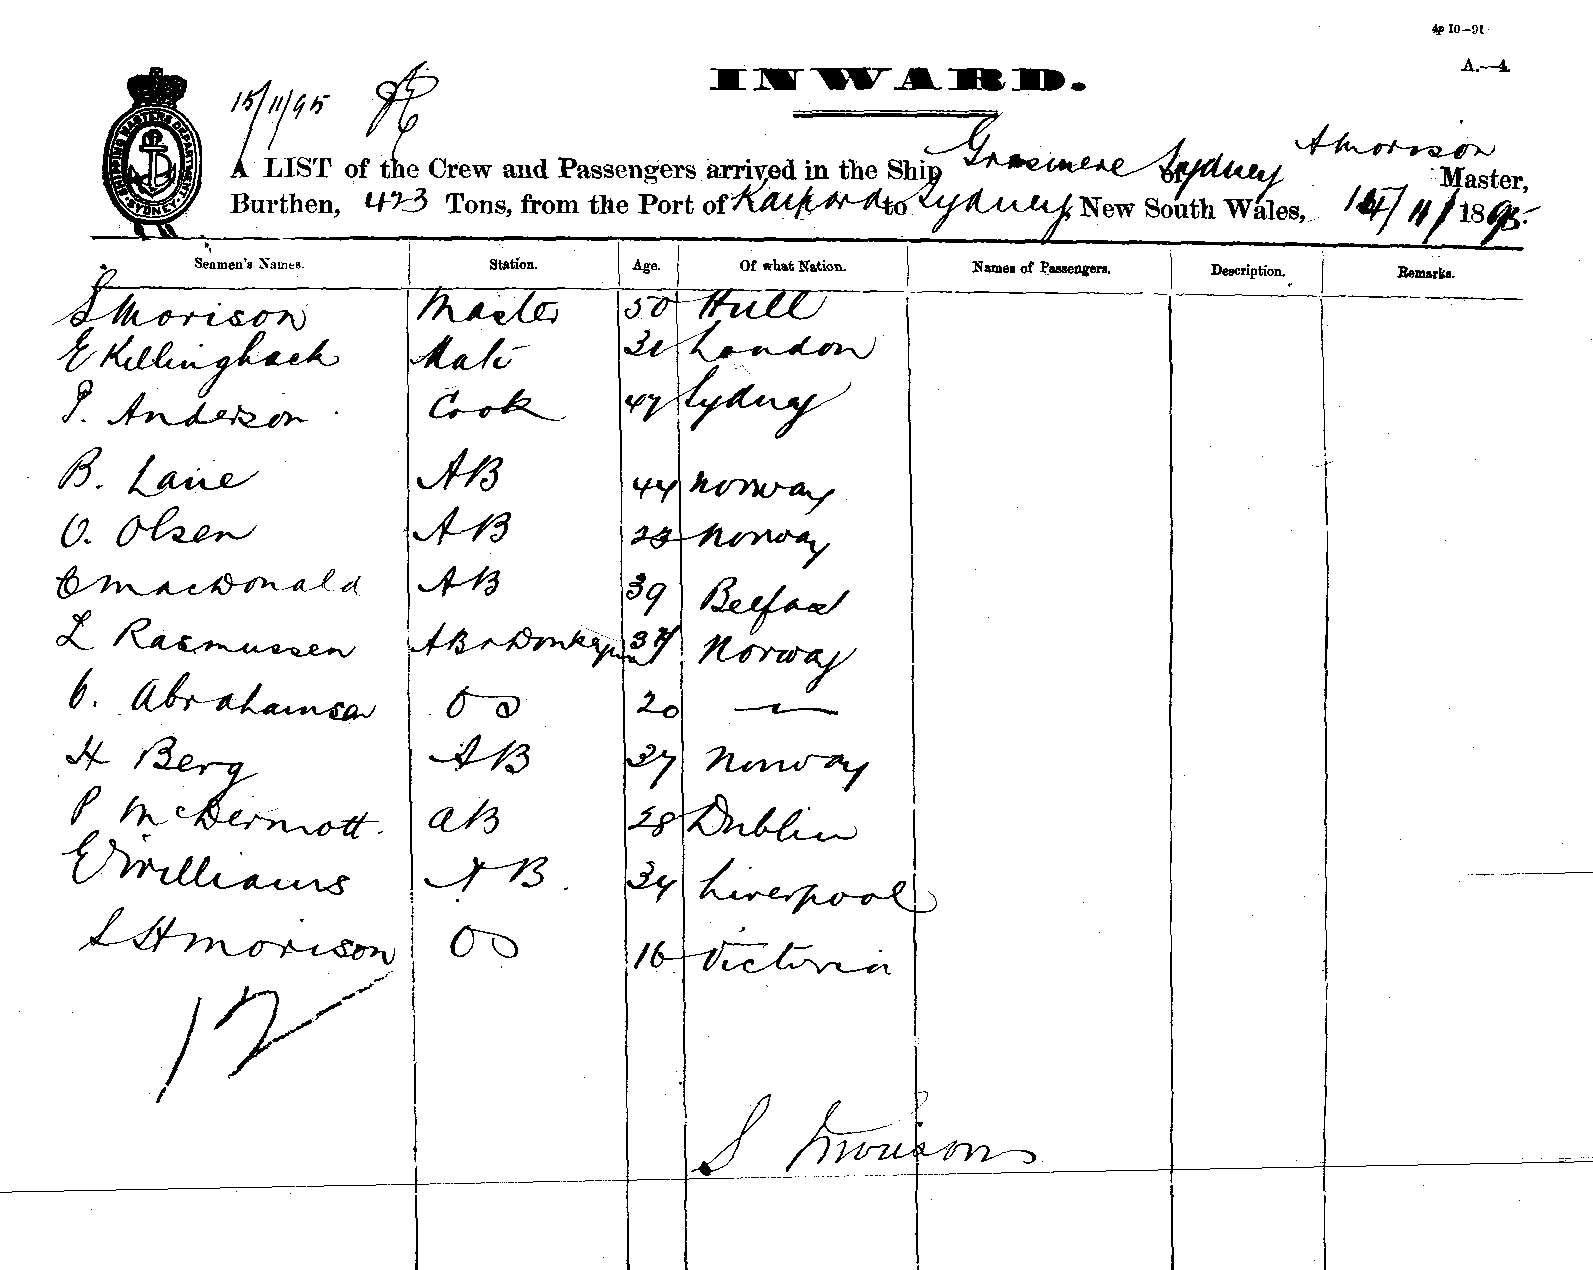 4p 10–91
A.—4
INWARD.
15/11/95
SHIPPING MASTERS DEPARTMENT SYDNEY
A LIST of the Crew and Passengers arrived in the Ship Grasmere of Sydney Morison Master,
Burthen, 423 Tons, from the Port of to Sydney, New South Wales, 14/11/1895.
Seamen's Names. Station. Age. Of what Nation. Names of Passengers. Description. Remarks.
S Morison Master 50 Hull
E Killingback Mate London
P. Anderson Cook 47 Sydney
B. Lane AB 44 Norway
O. Olsen AB 23 Norway
C MacDonald AB 39 Belfast
L Rasmussen AB & Donkeyman Norway
Abrahamsen OS 20 —
H Berg AB 37 Norway
P McDermott. AB 28 Dublin
E Williams AB. 34 Liverpool
S H Morison OS 16 Victoria
12
S Morison